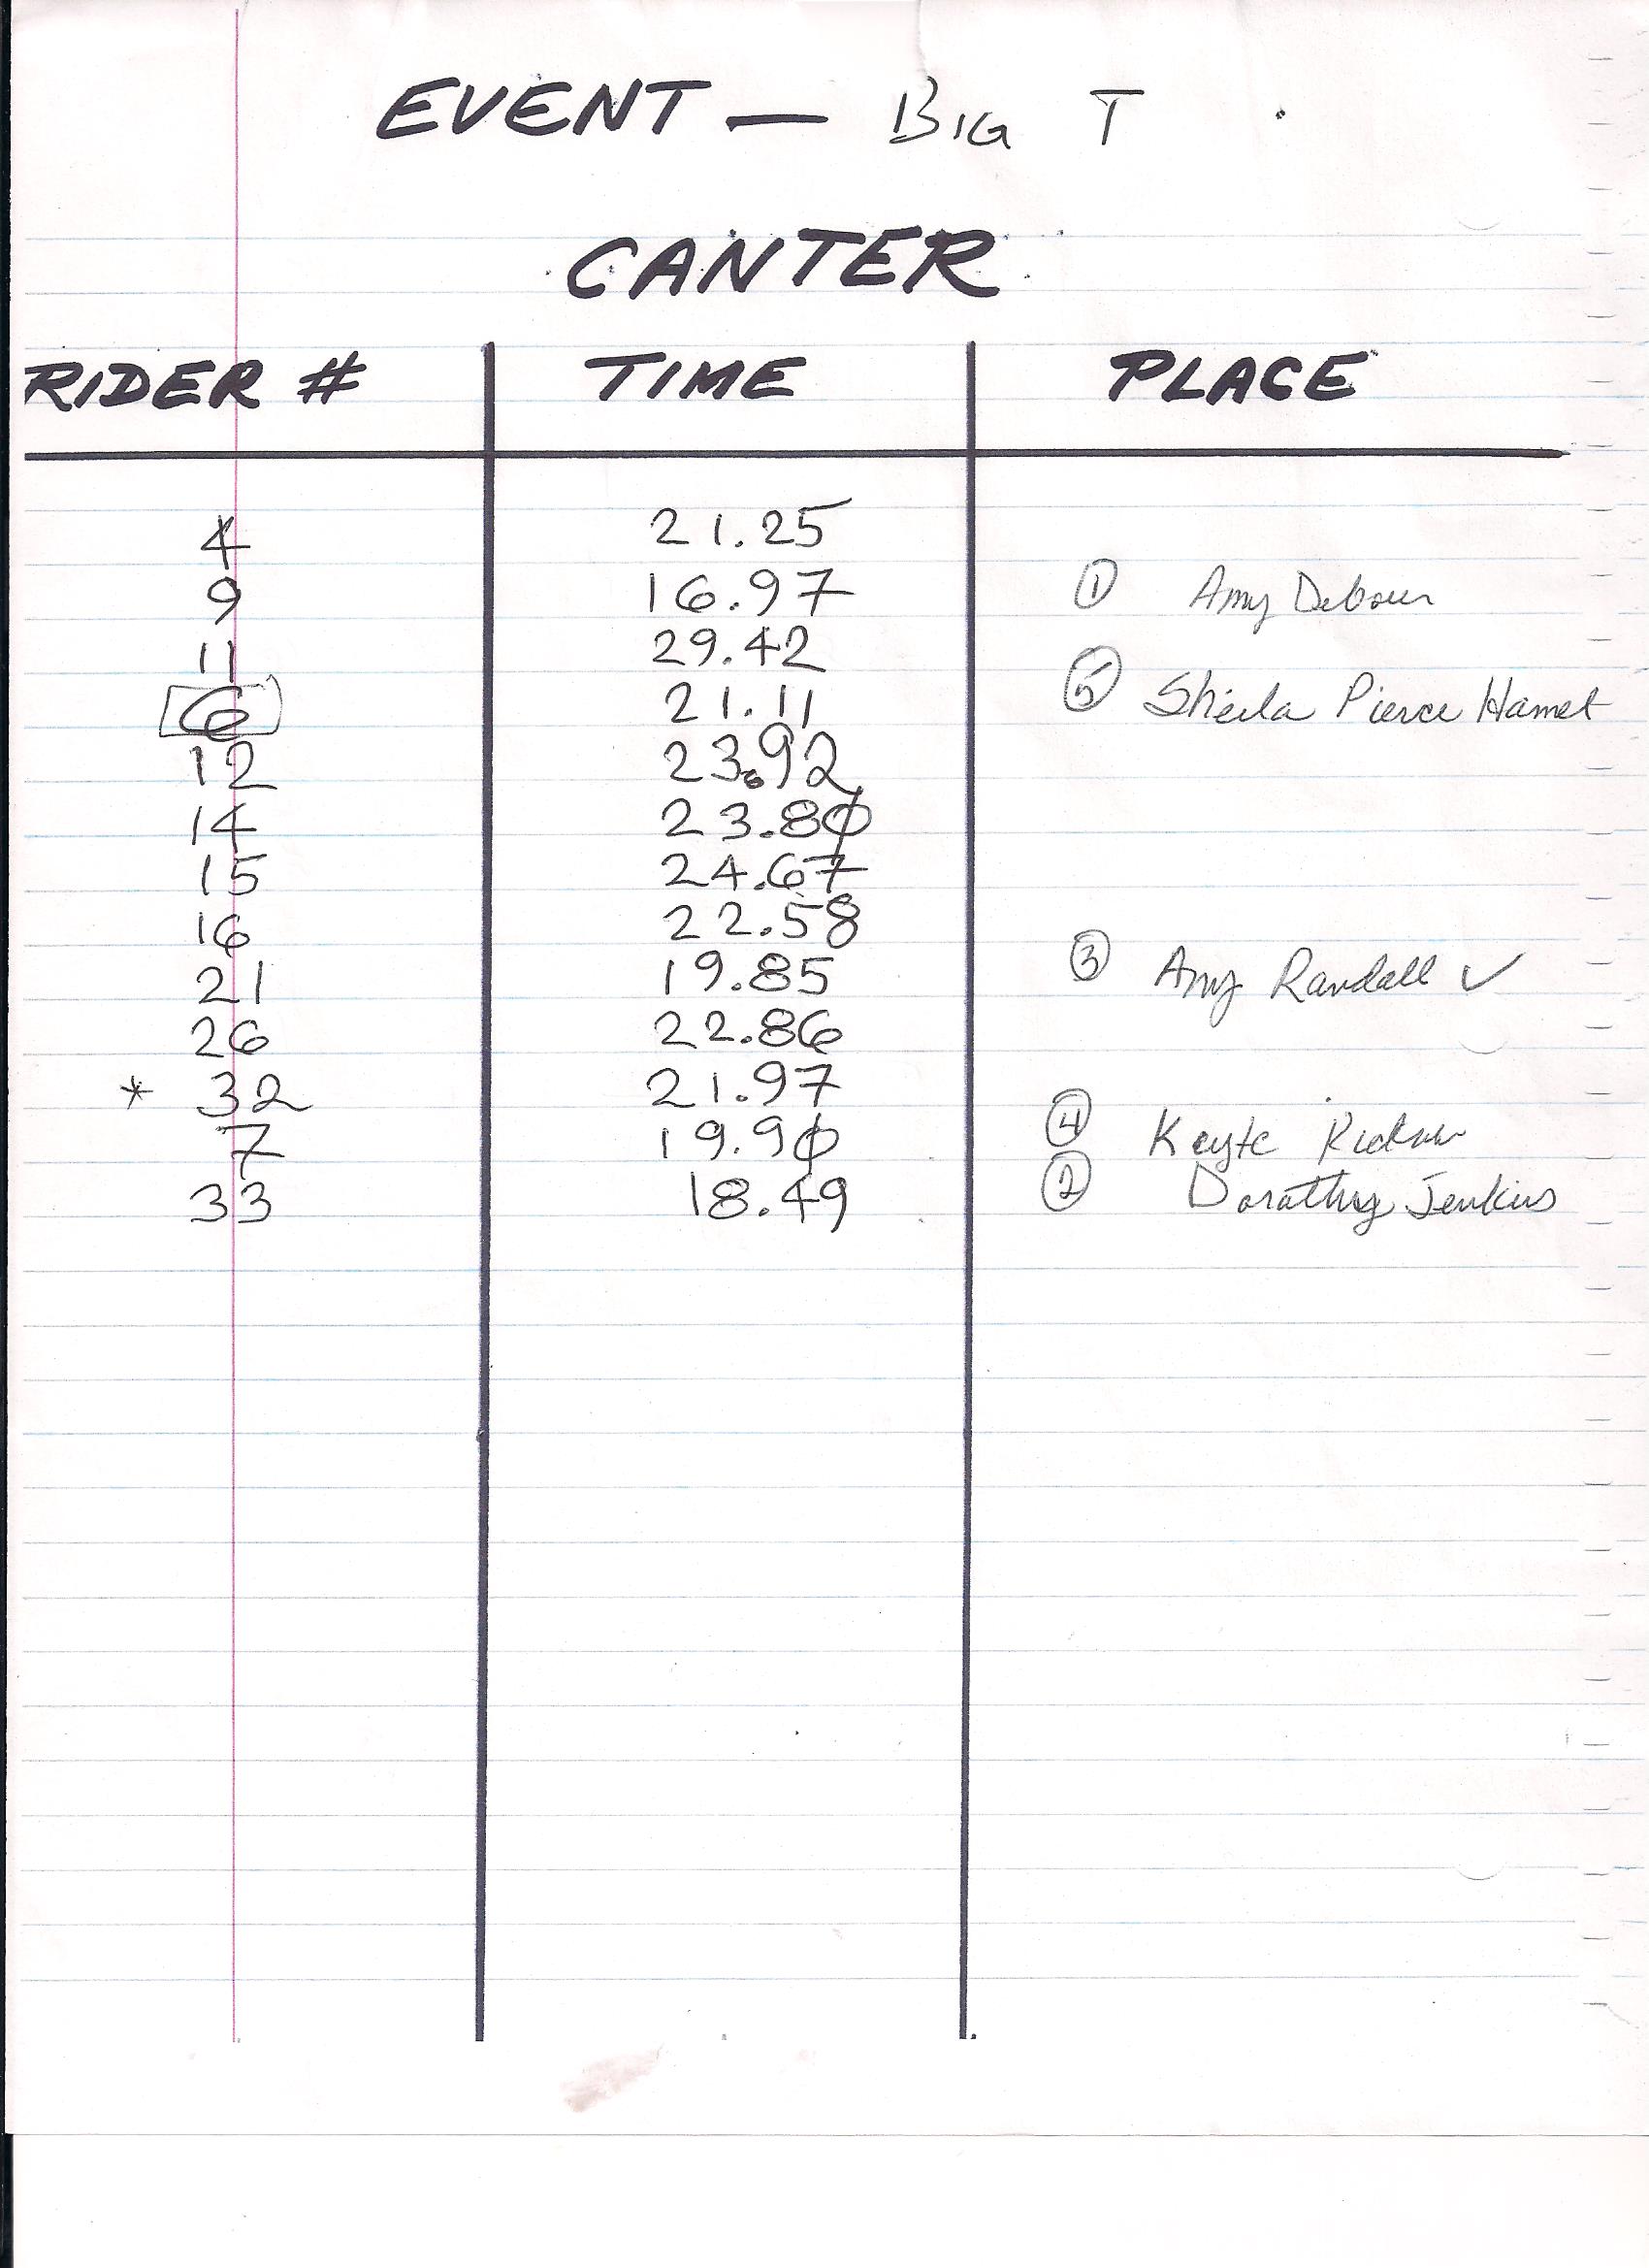 EVENT — BIG T
CANTER
RIDER # TIME PLACE
4 21.25
9 16.97 ① Amy
11 29.42
6 21.11 ⑤ Sheila Pierce Hamet
12 23.92
14 23.80
15 24.67
16 22.58
21 19.85 ③ Amy Randall ✓
26 22.86
* 32 21.97
7 19.90 ④
33 18.49 ② Dorothy Jenkins